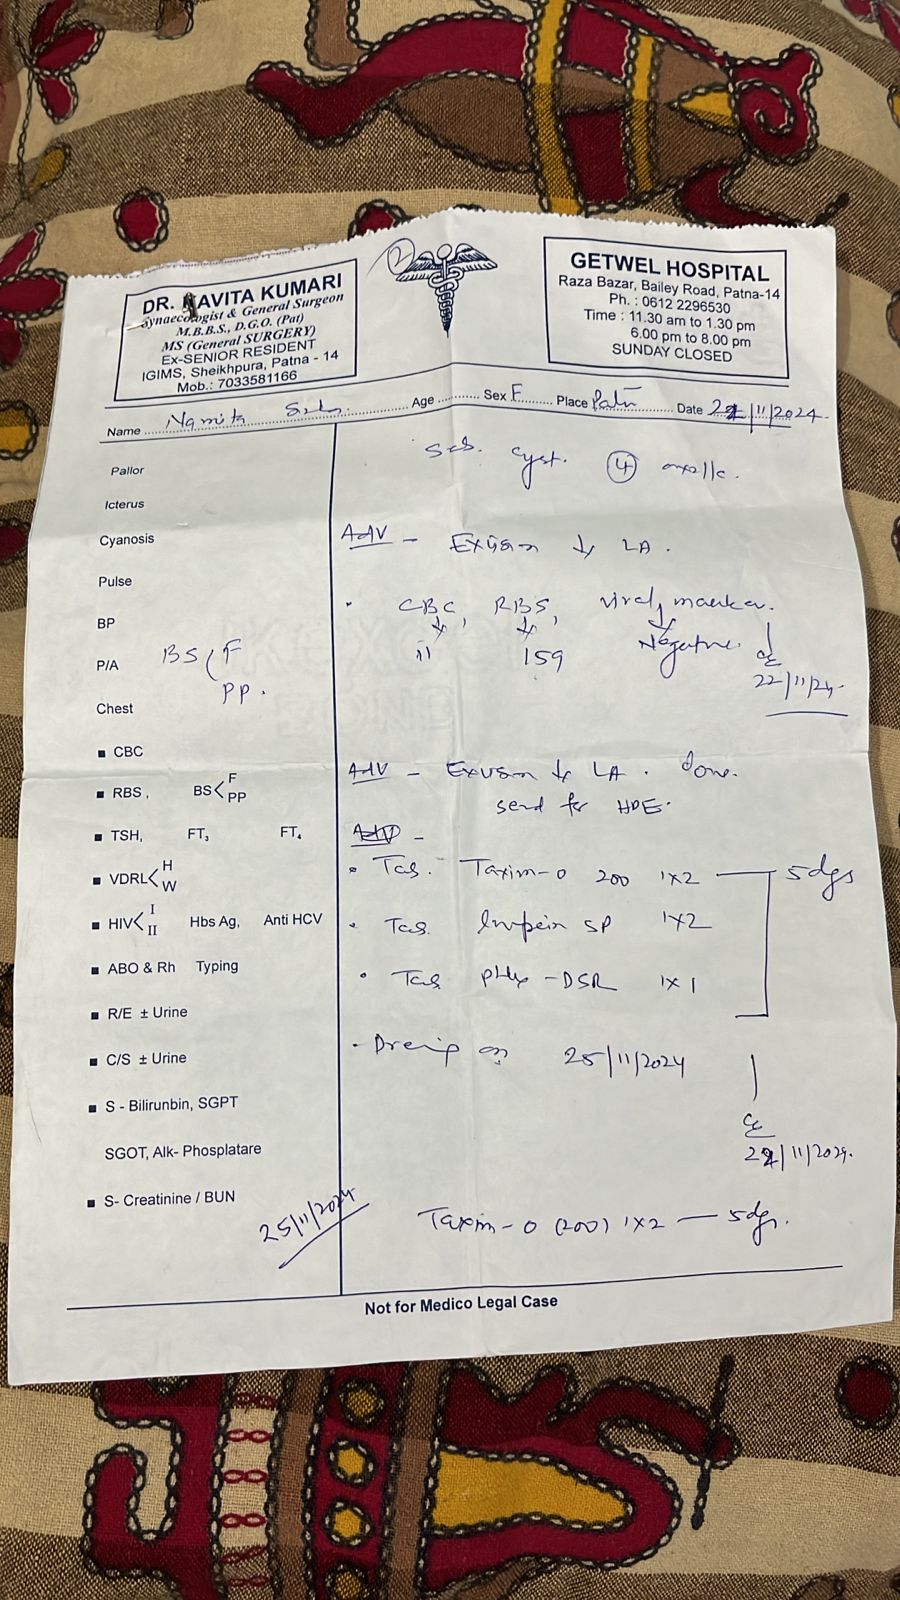 DR. KAVITA KUMARI
Gynaecologist & General Surgeon
M.B.B.S., D.G.O. (Pat)
MS (General SURGERY)
Ex-SENIOR RESIDENT
IGIMS, Sheikhpura, Patna - 14
Mob.: 7033581166
2
GETWEL HOSPITAL
Raza Bazar, Bailey Road, Patna-14
Ph. : 0612 2296530
Time : 11.30 am to 1.30 pm
6.00 pm to 8.00 pm
SUNDAY CLOSED
Name Namita Age Sex F Place Date /11/2024
Seb. cyst. axilla.
Pallor
Icterus
Cyanosis
Pulse
BP
P/A
Chest
BS F
PP.
CBC
RBS, BS F PP
TSH, FT3 FT4
VDRL H W
HIV I II Hbs Ag, Anti HCV
ABO & Rh Typing
R/E ± Urine
C/S ± Urine
S - Bilirunbin, SGPT
SGOT, Alk- Phosplatare
S- Creatinine / BUN
Adv - Excision LA.
CBC, RBS, viral marker.
11 159 Negative.
22/11/24
Adv - Excision LA. done.
send for HPE.
Tab. Taxim-O 200 1x2 5 days
Tab SP 1x2
Tab -DSR 1x1
Dressing on 25/11/2024
/11/2024.
25/11/2024
Taxim-O (200) 1x2 — 5 days.
Not for Medico Legal Case